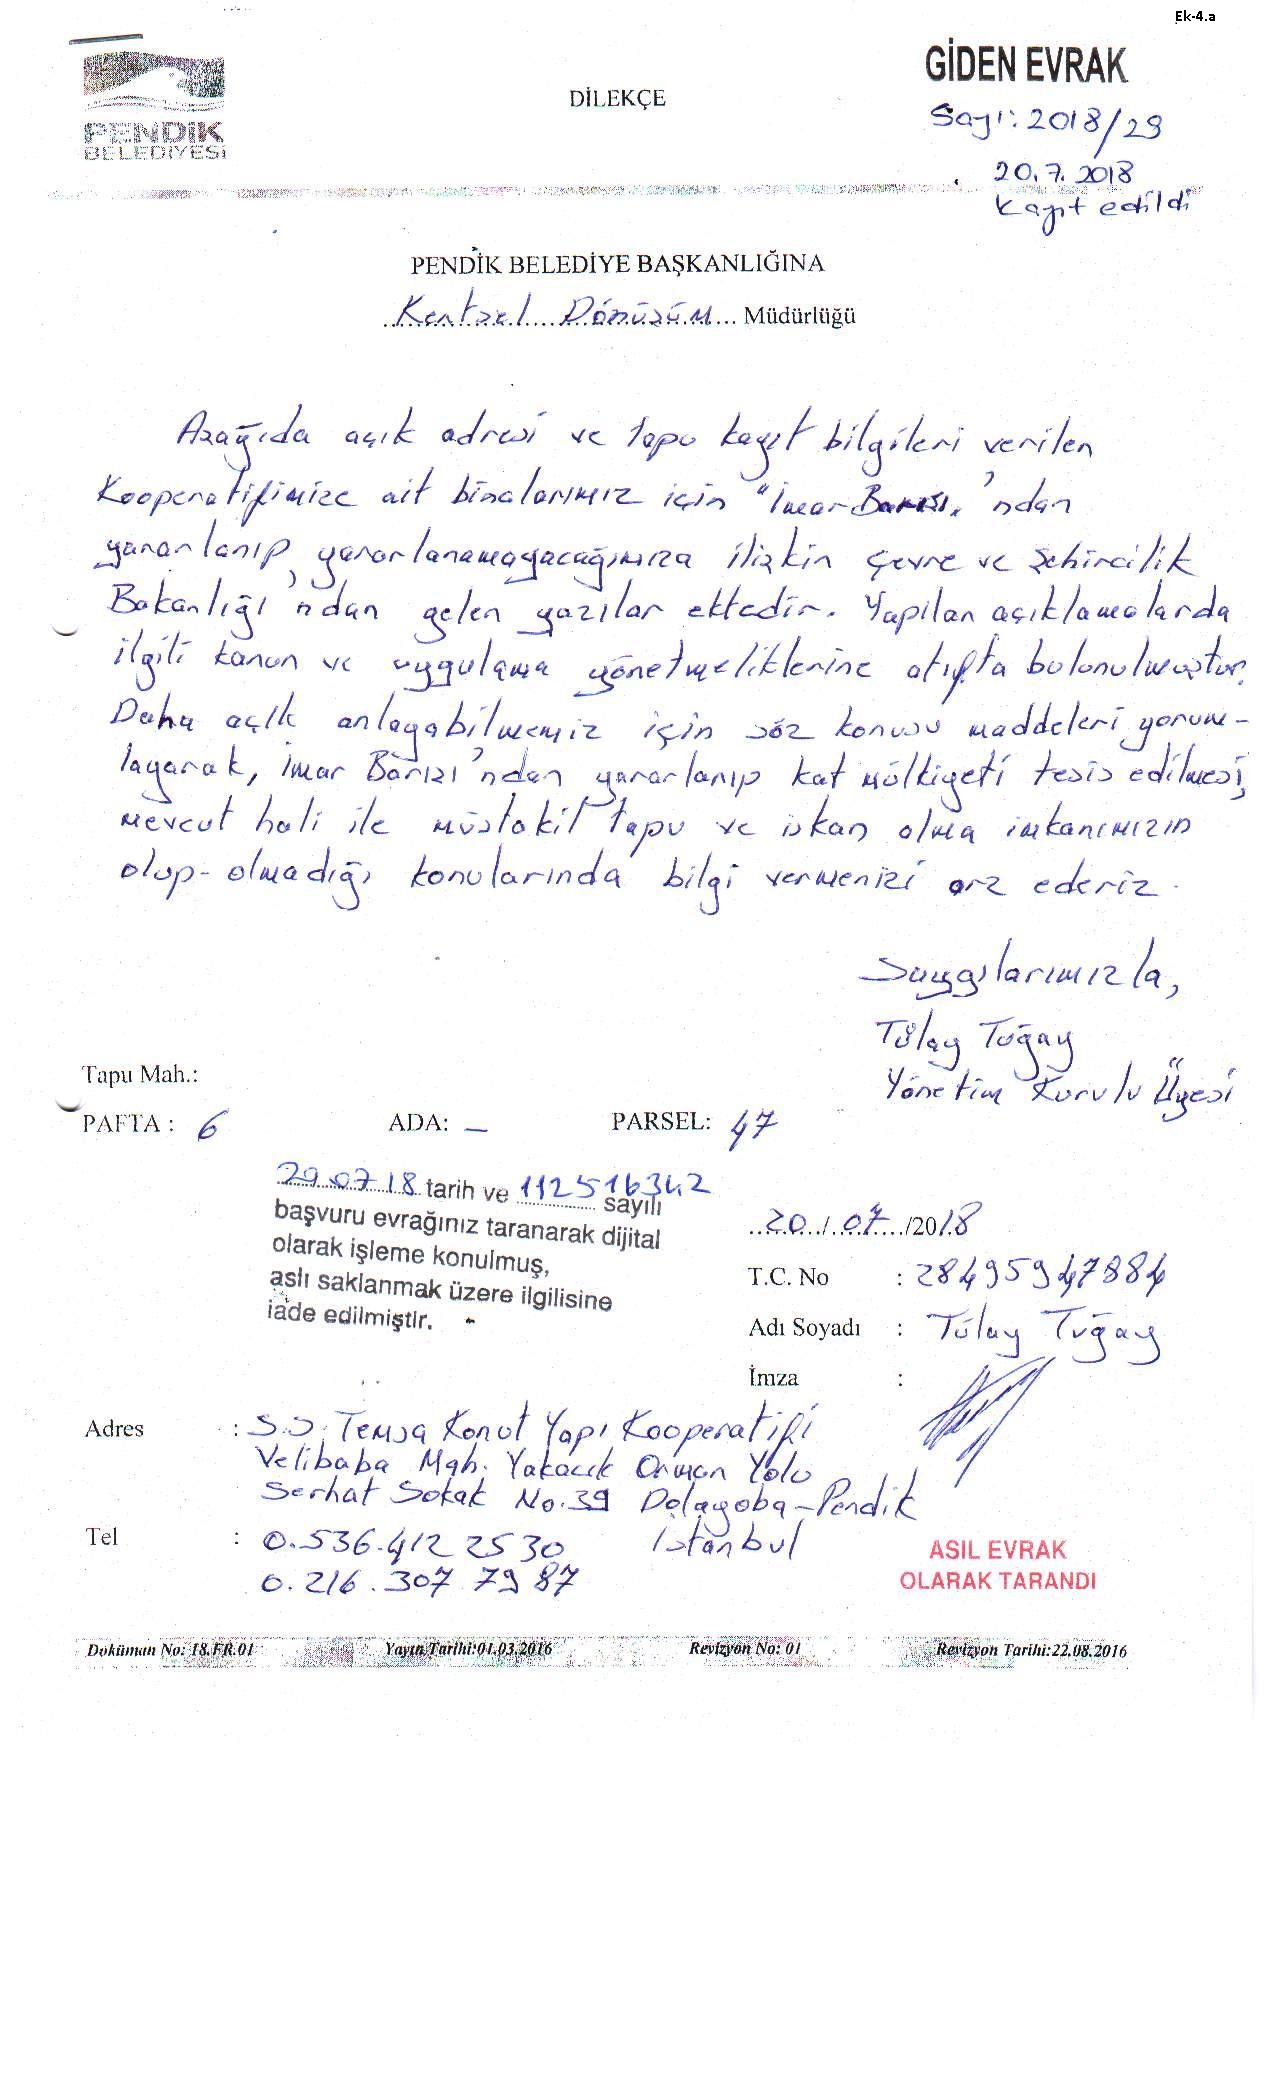 Ek-4.a
PENDİK
BELEDİYESİ
DİLEKÇE
GİDEN EVRAK
Sayı: 2018/29
20.7.2018
Kayıt edildi
PENDİK BELEDİYE BAŞKANLIĞINA
Kentsel Dönüşüm Müdürlüğü
Aşağıda açık adresi ve tapu kayıt bilgileri verilen
Kooperatifimize ait binalarımız için "İmar Barışı"ndan
yararlanıp yararlanamayacağımıza ilişkin Çevre ve Şehircilik
Bakanlığı'ndan gelen yazılar ektedir. Yapılan açıklamalarda
ilgili kanun ve uygulama yönetmeliklerine atıfta bulunulmuştur.
Daha açık anlayabilmemiz için söz konusu maddeleri yorum-
layarak, İmar Barışı'ndan yararlanıp kat mülkiyeti tesis edilmesi,
mevcut hali ile müstakil tapu ve iskan alma imkanımızın
olup-olmadığı konularında bilgi vermenizi arz ederiz.
Saygılarımızla,
Tülay Tuğay
Yönetim Kurulu Üyesi
Tapu Mah.:
PAFTA : 6 ADA: — PARSEL: 47
20.07.18 tarih ve 112516342 sayılı
başvuru evrağınız taranarak dijital
olarak işleme konulmuş,
aslı saklanmak üzere ilgilisine
iade edilmiştir.
20/07/2018
T.C. No : 28495947884
Adı Soyadı : Tülay Tuğay
İmza :
Adres : S.S. Temsa Konut Yapı Kooperatifi
Velibaba Mah. Yakacık Orman Yolu
Serhat Sokak No.39 Dolayoba-Pendik
İstanbul
Tel : 0.536.412 25 30
0.216.307 79 87
ASIL EVRAK
OLARAK TARANDI
Doküman No: 18.FR.01 Yayın Tarihi:01.03.2016 Revizyon No: 01 Revizyon Tarihi:22.08.2016